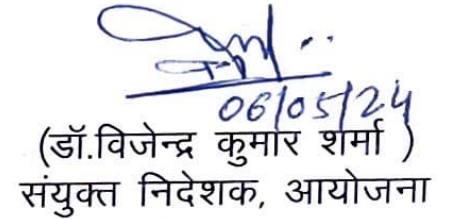 06/05/24
(डॉ.विजेन्द्र कुमार शर्मा )
संयुक्त निदेशक, आयोजना